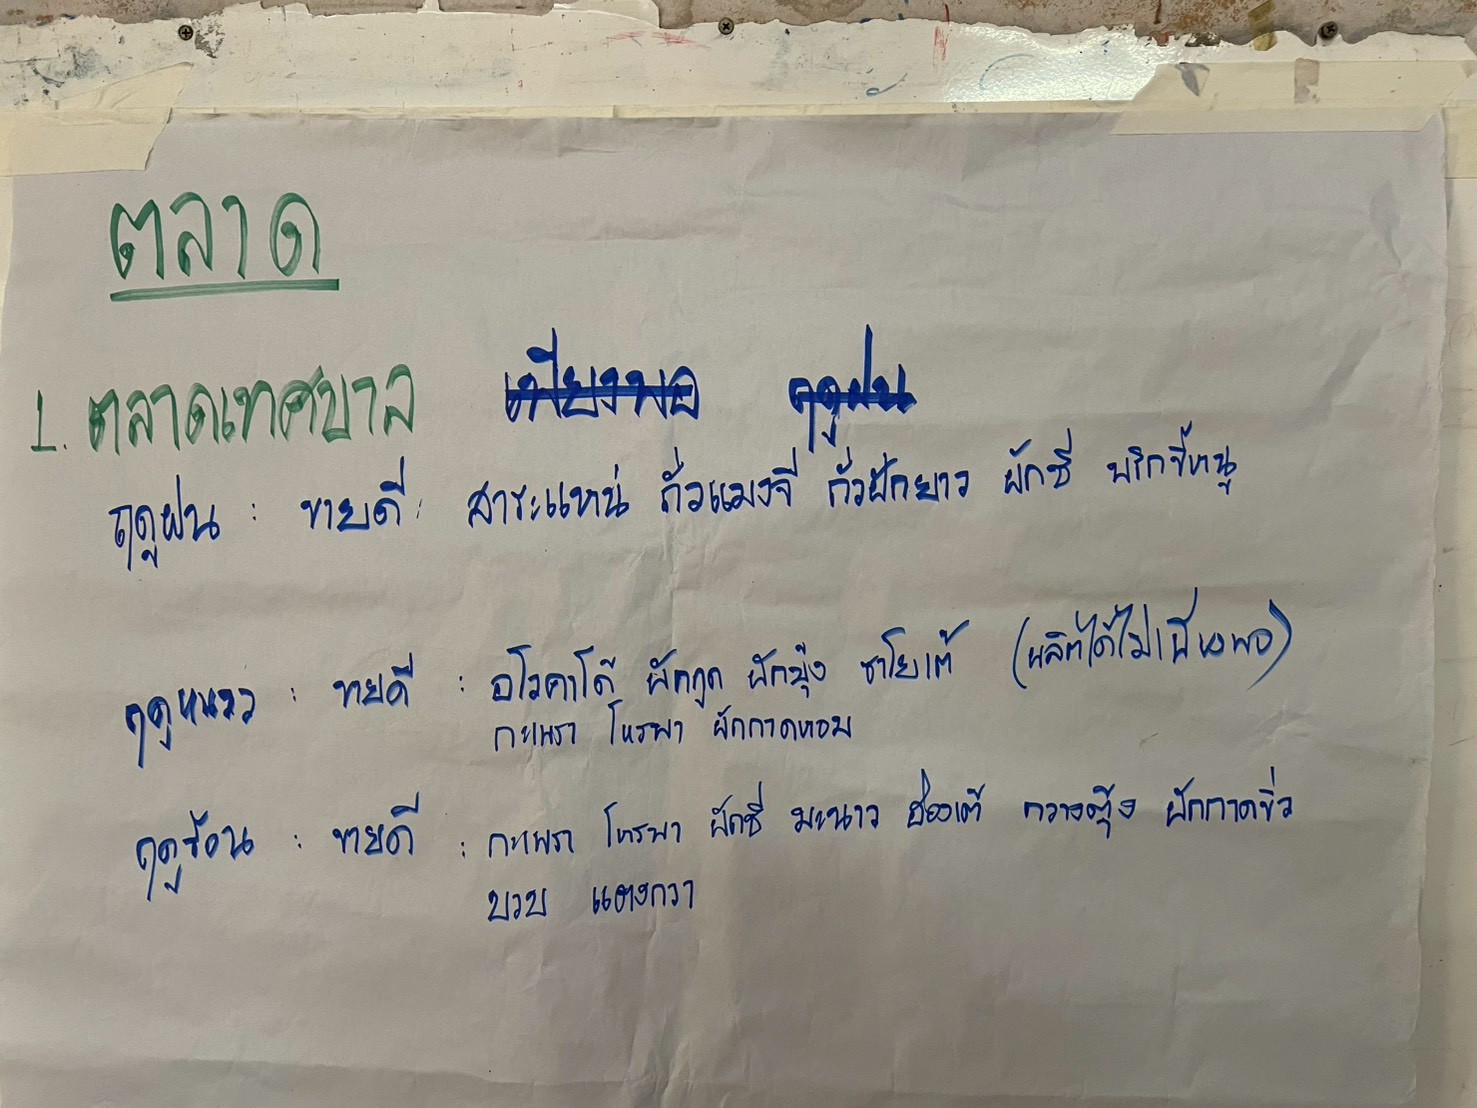 ตลาด
1. ตลาดเทศบาล เพียงพอ ฤดูฝน
ฤดูฝน : ขายดี : สาระแหน่ ถั่วแมงจี่ ถั่วฝักยาว ผักชี พริกขี้หนู
ฤดูหนาว : ขายดี : อโวคาโด้ ผักกูด ผักบุ้ง ซาโยเต้ (ผลิตได้ไม่เพียงพอ)
กะเพรา โหรพา ผักกาดหอม
ฤดูร้อน : ขายดี : กะเพรา โหรพา ผักชี มะนาว ฮ่องเต้ กวางตุ้ง ผักกาดขิ่ว
บวบ แตงกวา